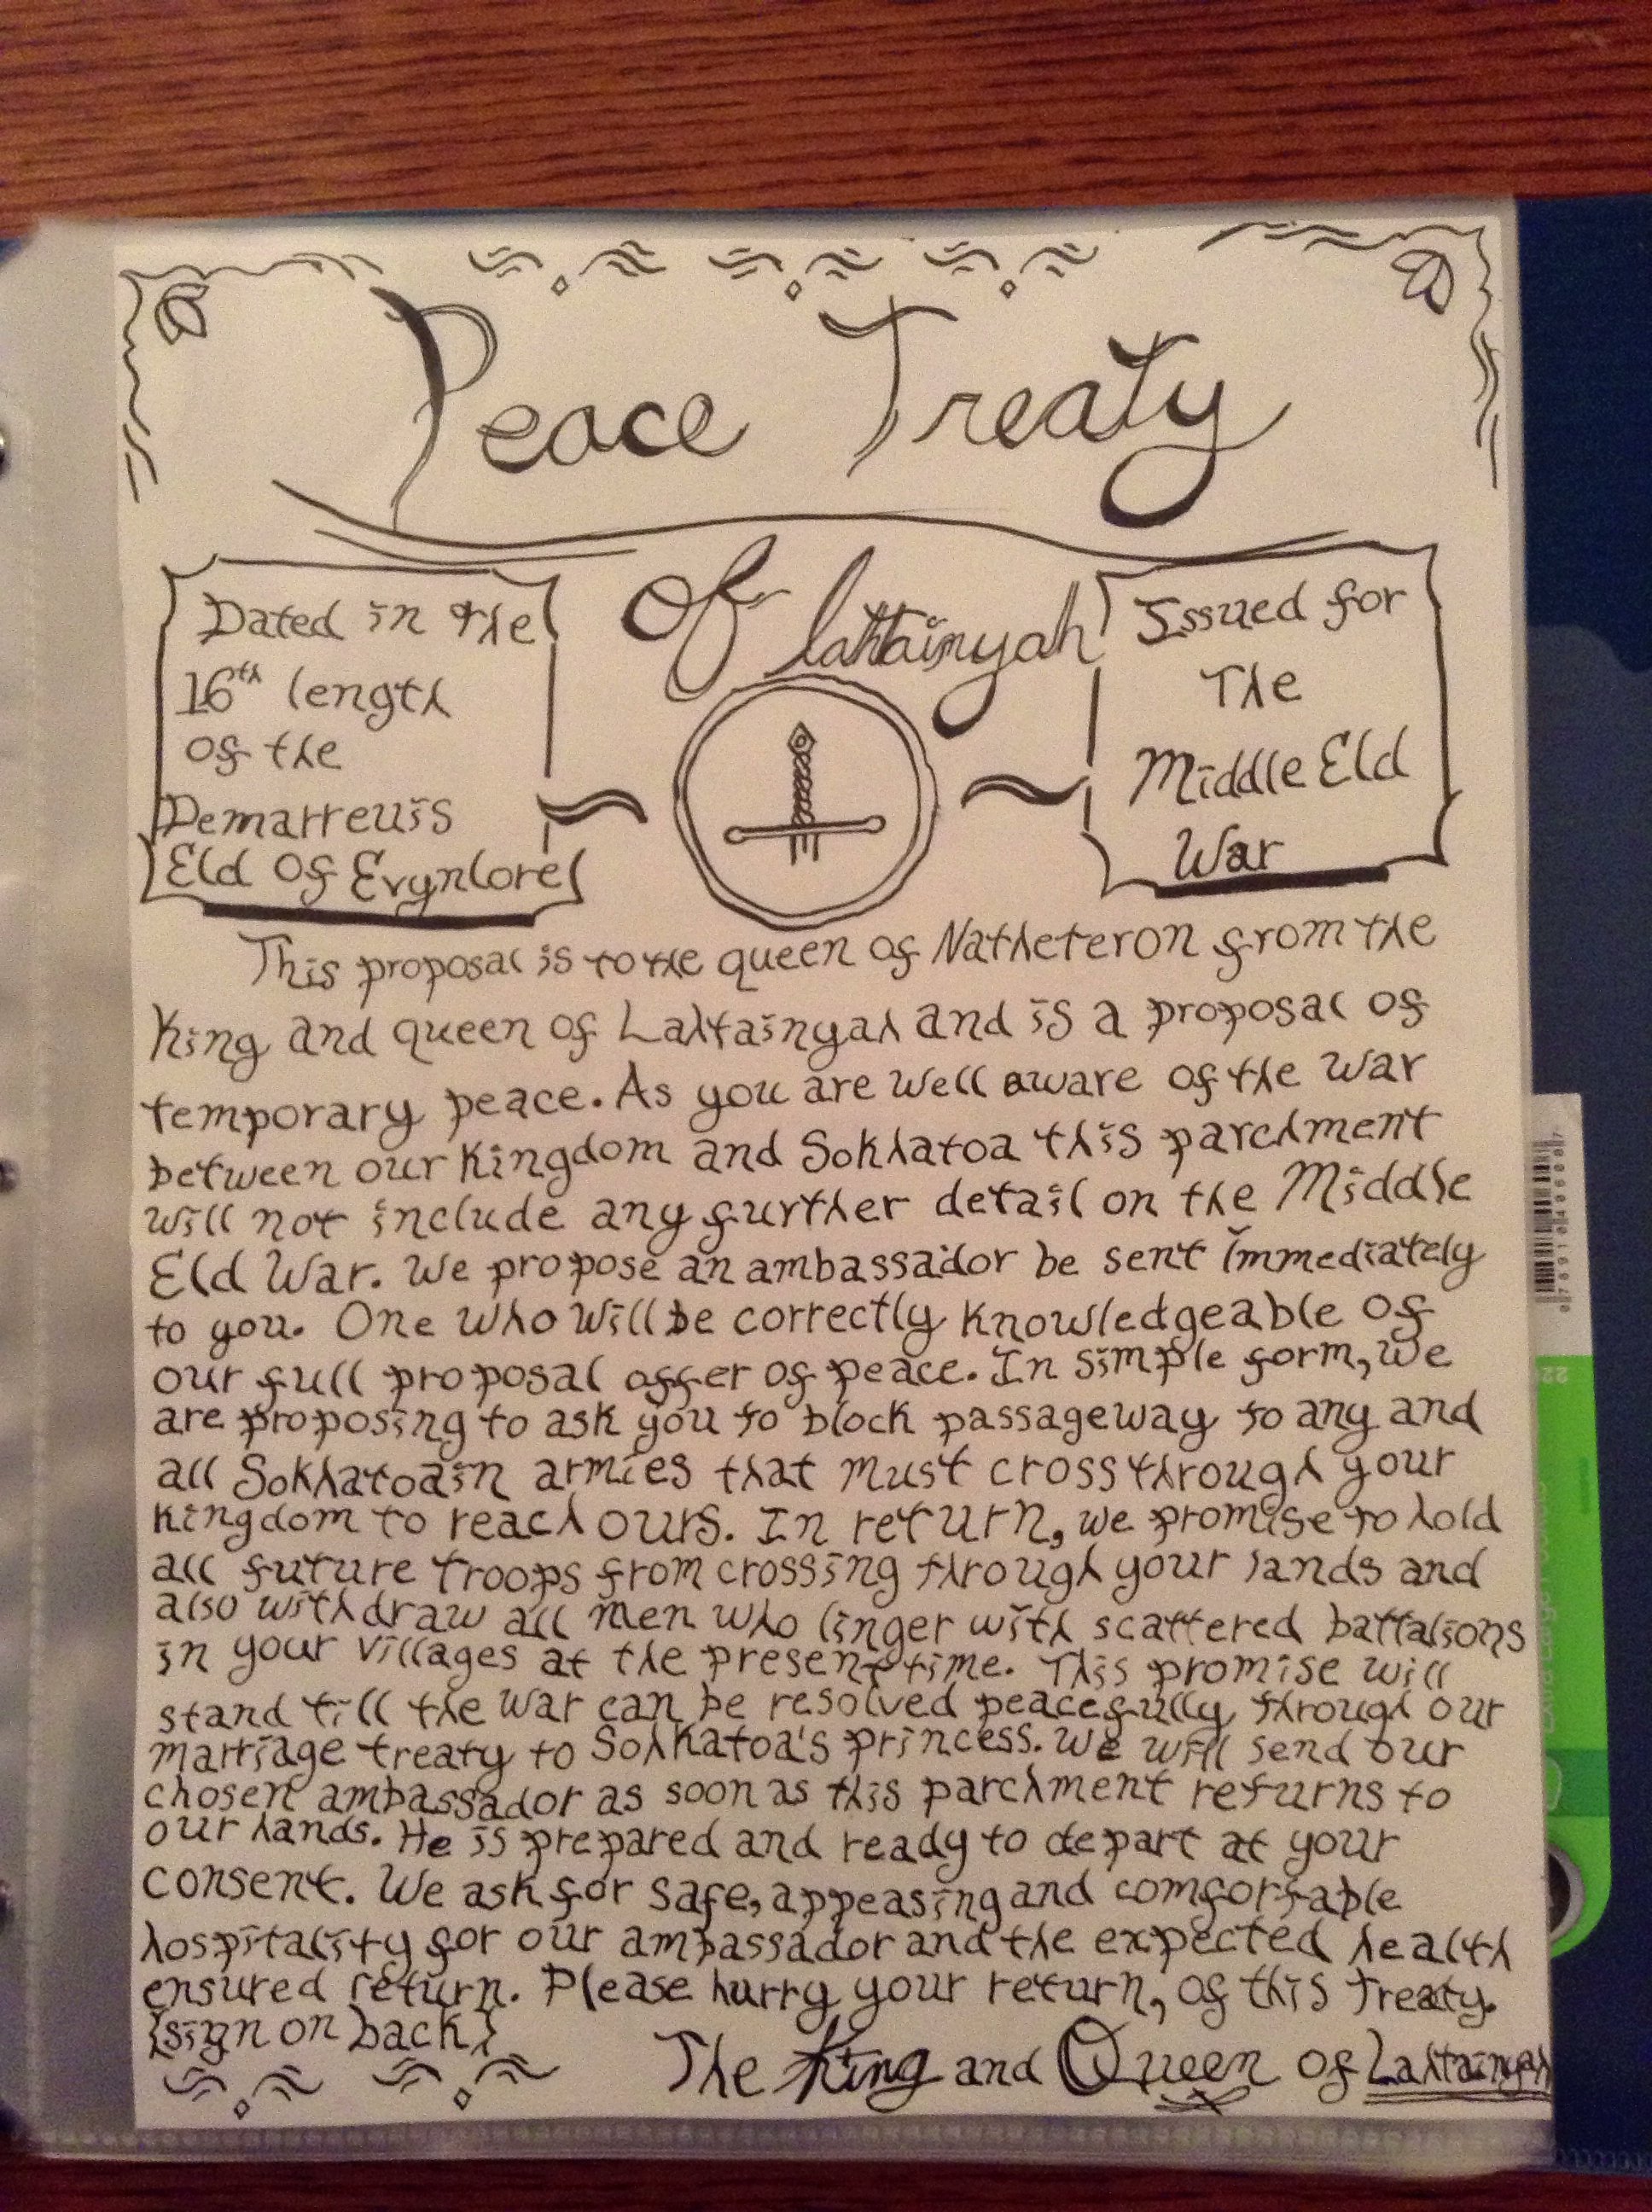 Peace Treaty
Of Lahtainyah
Dated in the
16th length
of the
Demarreuis
Eld Of Evynlore
Issued for
The
Middle Eld
War
This proposal is to the queen of Natheteron from the
King and queen of Lahtainyah and is a proposal of
temporary peace. As you are well aware of the war
between our kingdom and Sokhatoa this parchment
will not include any further detail on the Middle
Eld War. We propose an ambassador be sent immediately
to you. One who will be correctly knowledgeable of
our full proposal offer of peace. In simple form, we
are proposing to ask you to block passageway to any and
all Sokhatoain armies that must cross through your
kingdom to reach ours. In return, we promise to hold
all future troops from crossing through your lands and
also withdraw all men who linger with scattered battalions
in your villages at the present time. This promise will
stand till the war can be resolved peacefully through our
marriage treaty to Sohkatoa's princess. We will send our
chosen ambassador as soon as this parchment returns to
our hands. He is prepared and ready to depart at your
consent. We ask for safe, appeasing and comfortable
hospitality for our ambassador and the expected health
ensured return. Please hurry your return, of this treaty.
{sign on back}
The King and Queen of Lahtainyah